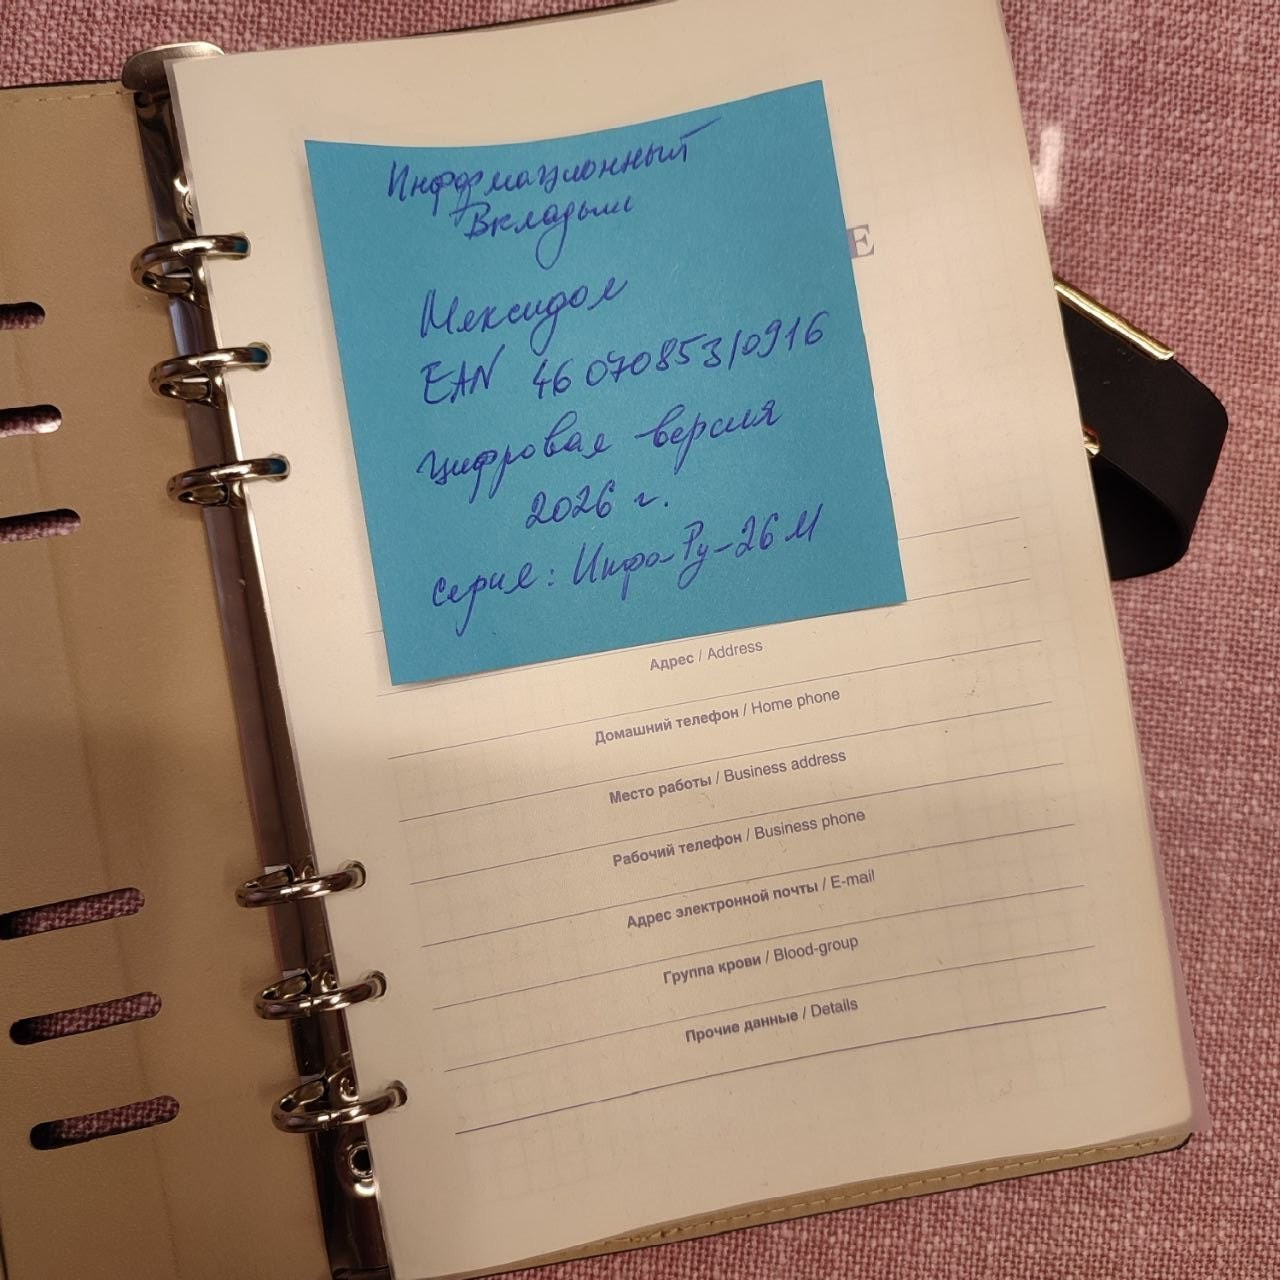 Информационный
Вкладыш
Мексидол
EAN 4607085310916
цифровая версия
2026 г.
серия: Инфо-Ру-26М
E
Адрес / Address
Домашний телефон / Home phone
Место работы / Business address
Рабочий телефон / Business phone
Адрес электронной почты / E-mail
Группа крови / Blood-group
Прочие данные / Details